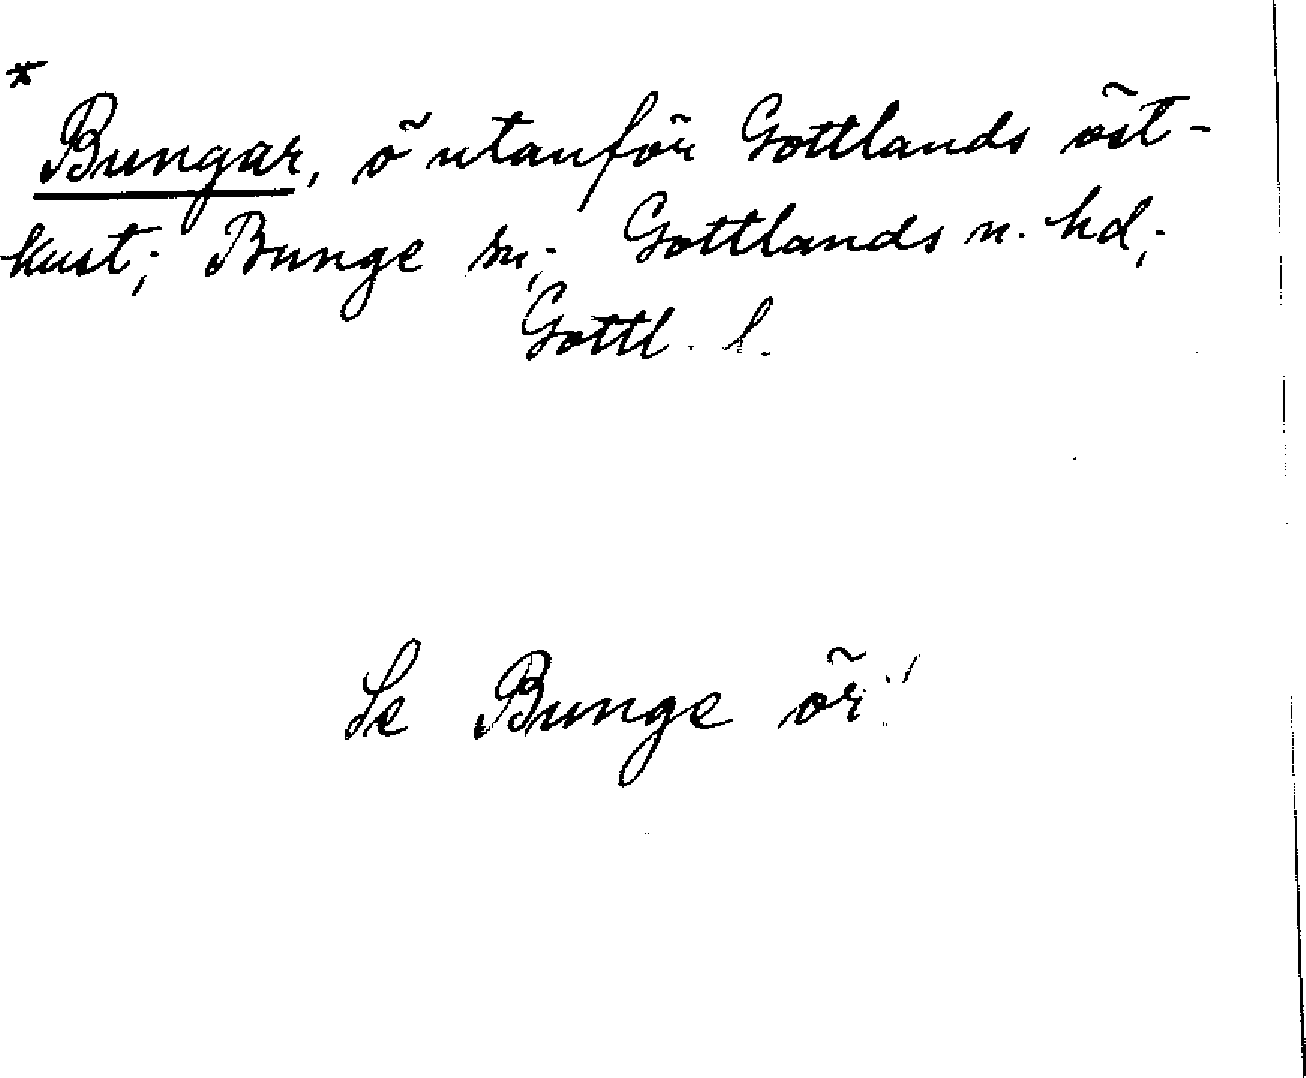 *
Bungar, ö utanför Gottlands öst-
kust; Bunge sn; Gottlands n. hd;
Gottl. l.
Se Bunge ör!